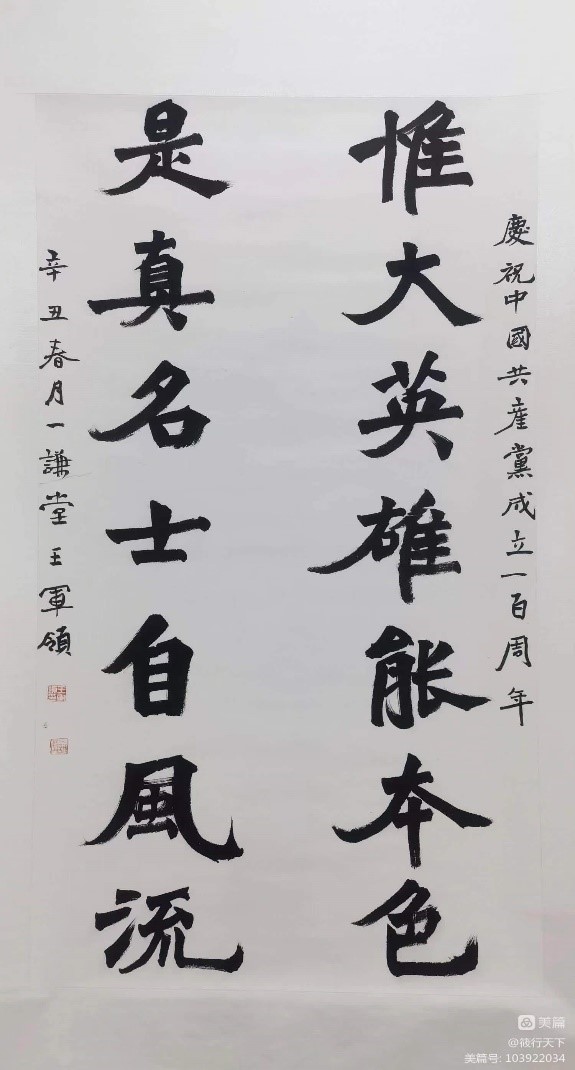 慶祝中國共産黨成立一百周年
惟大英雄能本色
是真名士自風流
辛丑春月一謙堂王軍領
美篇
@筱行天下
美篇号: 103922034